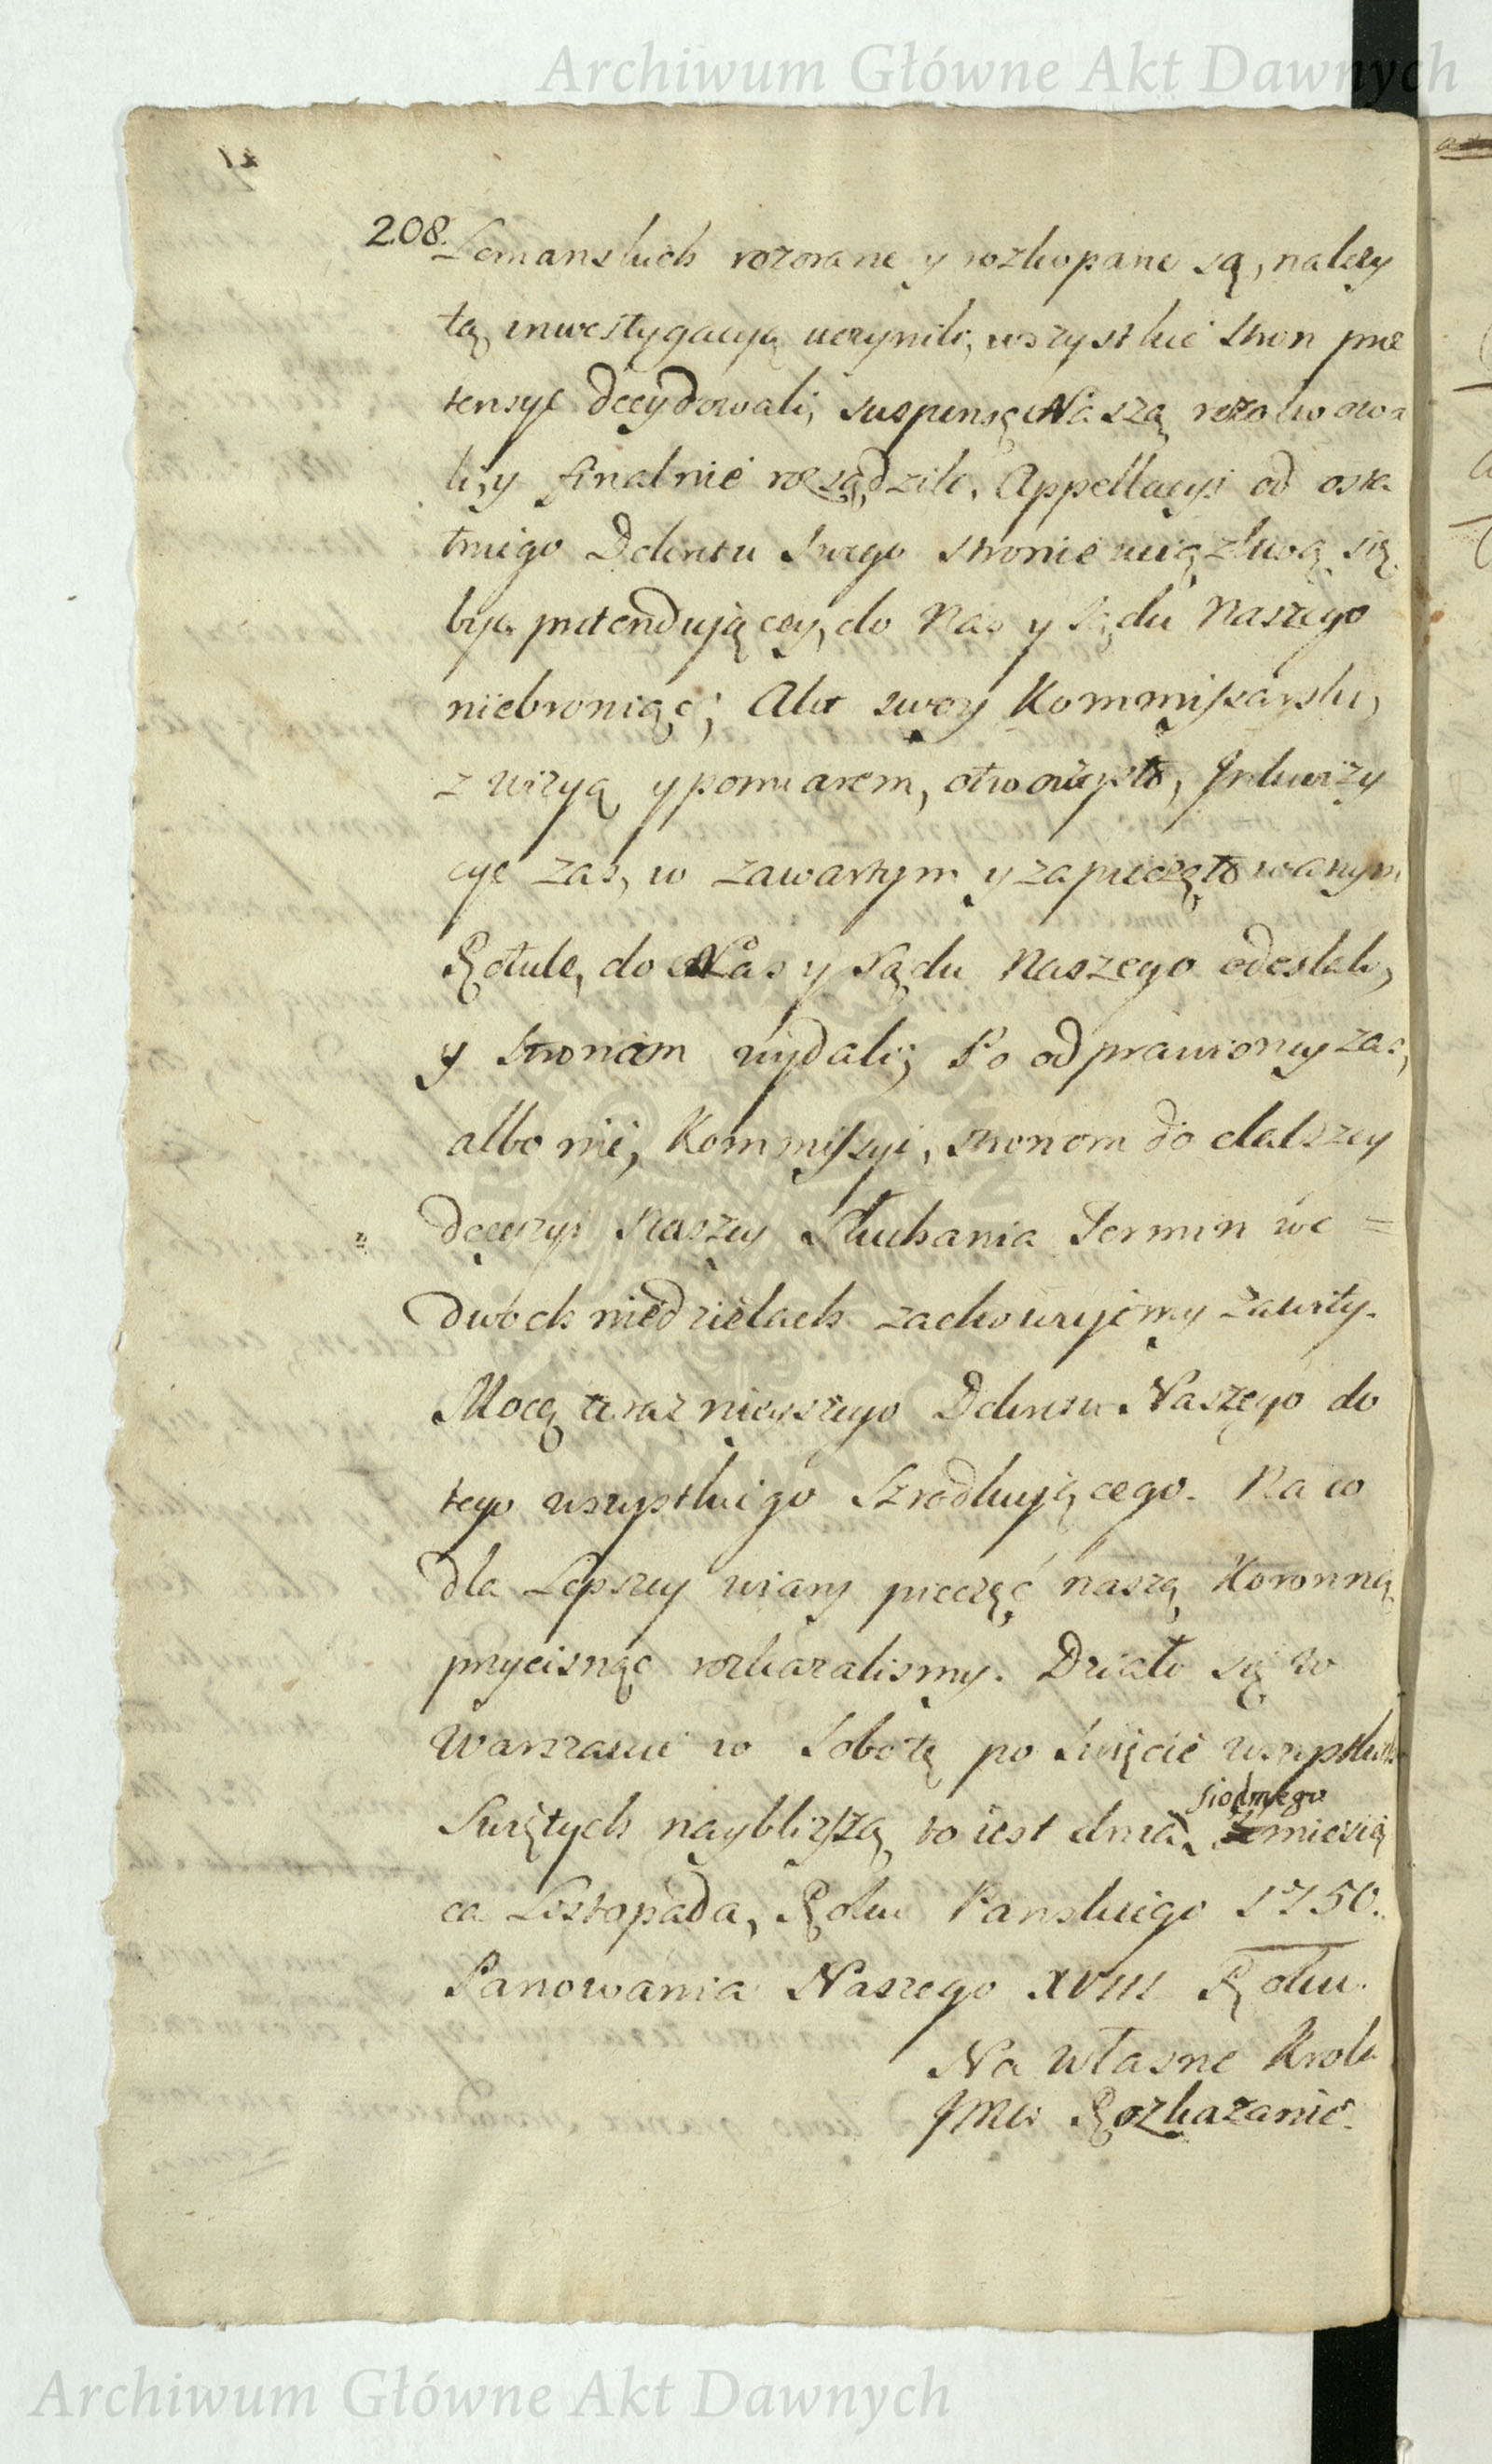 Archiwum Główne Akt Dawnych
208.
Lemanskich rozorane y rozkopane są, należy
tą inwestygacyą uczynili, wszystkie stron pre
tensye decydowali, suspensę Naszą rezolwowa
li, y finalnie rozsądzili. Appellacyi od osta
tniego Dekretu swego stronie uciążliwą się
byc pretendującey, do Nas y Sądu Naszego
niebroniąc; Akt swoy Kommissarski,
z wizyą y pomiarem, otworzysto, Inkwizy
cye zas, w zawartym y zapieczętowanym
Rotule, do Nas y Sądu Naszego odesłali,
y stronom wydali; Po odprawioney zas,
albo nie, Kommissyi, stronom do dalszey
decyzyi Naszey słuchania Termin we =
dwoch niedzielach zachowujemy zawity.
Mocą teraznieyszego Dekretu Naszego do
tego wszystkiego szrodkującego. Na co
dla Lepszey wiary pieczęć naszą Koronną
przycisnąc rozkazalismy. Działo się w
Warszawie w Sobotę po Swięcie wszystkich
Swiętych naybliższą, to iest dnia siodmego miesią
ca Listopada, Roku Panskiego 1750.
Panowania Naszego XVIII Roku.
Na własne Krola
JMci Rozkazanie.
Archiwum Główne Akt Dawnych